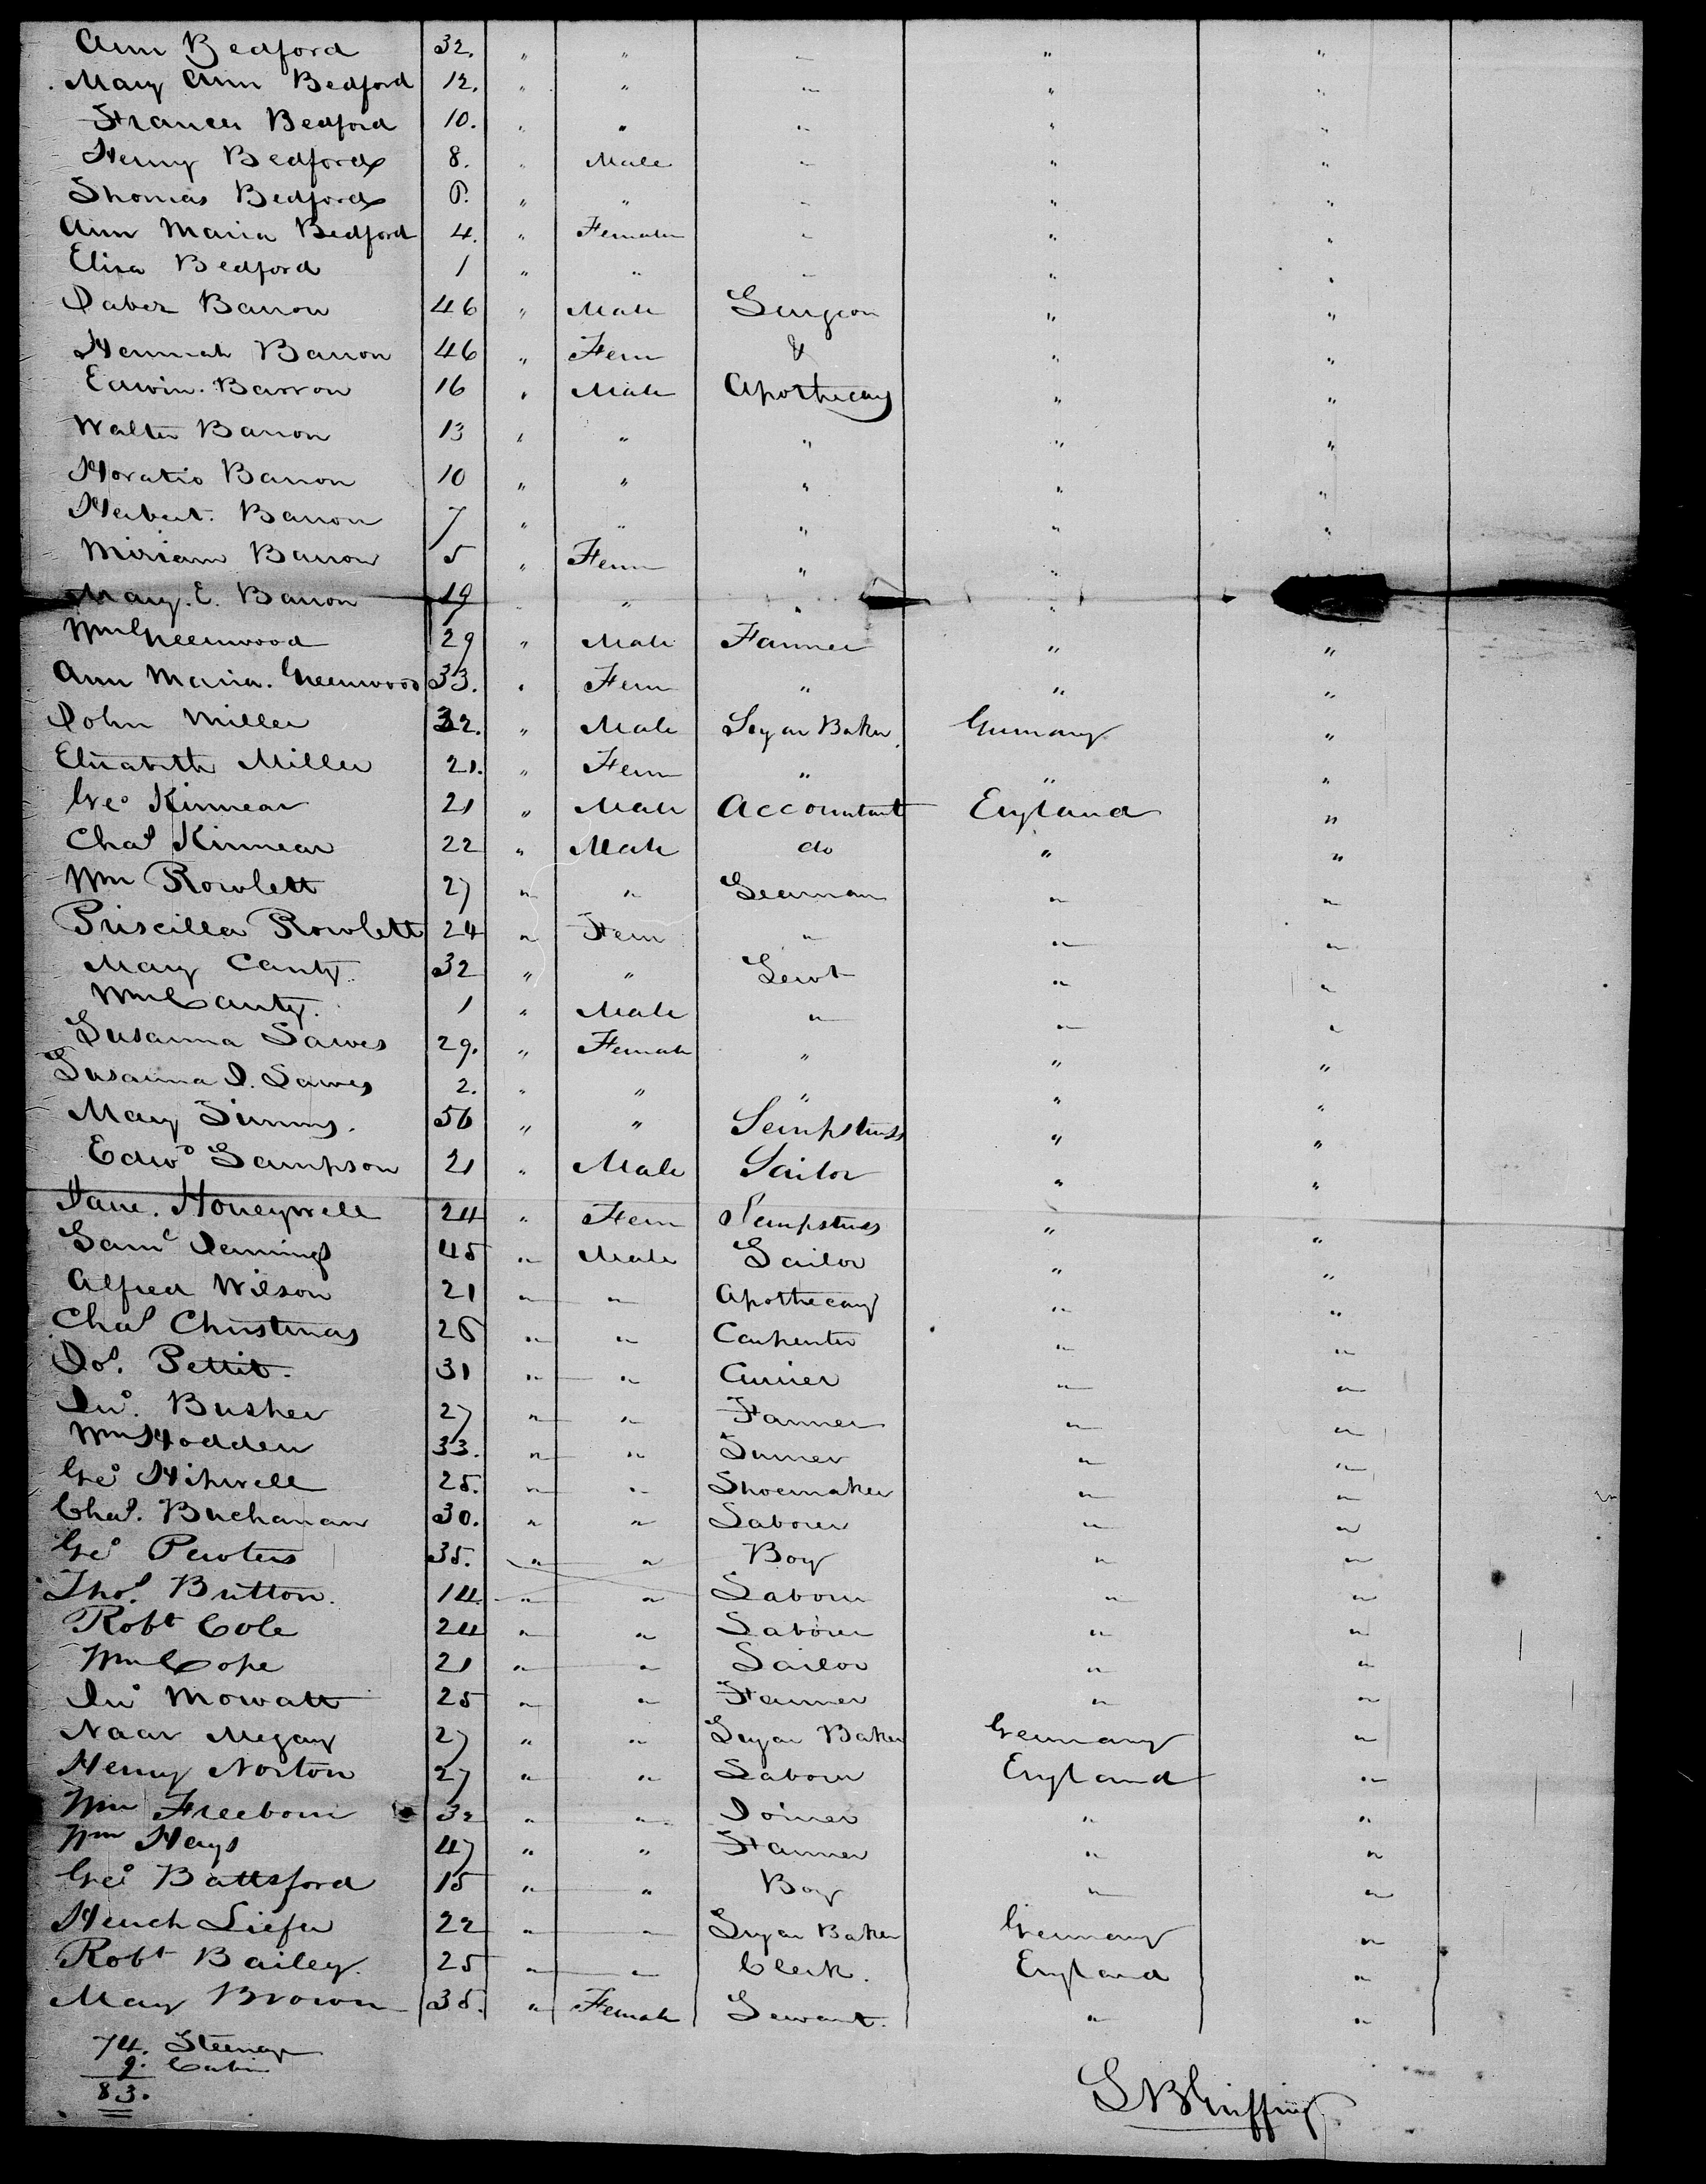 Ann Bedford 32. " " " " "
Mary Ann Bedford 12. " " " " "
Frances Bedford 10. " " " " "
Henry Bedford 8. " Male " " "
Thomas Bedford 6. " " " " "
Ann Maria Bedford 4. " Female " " "
Eliza Bedford 1 " " " " "
Jabez Barron 46 " Male Surgeon " "
Hannah Barron 46 " Fem & " "
Edwin. Barron 16 " Male Apothecary " "
Walter Barron 13 " " " " "
Horatio Barron 10 " " " " "
Herbert. Barron 7 " " " " "
Miriam Barron 5 " Fem " " "
Mary. E. Barron 19 " " " " "
Wm Greenwood 29 " Male Farmer " "
Ann Maria. Greenwood 33. " Fem " " "
John Miller 32. " Male Sugar Baker Germany "
Elizabeth Miller 21. " Fem " " "
Geo Kinnear 21 " Male Accountant England "
Chas Kinnear 22 " Male do " "
Wm Rowlett 27 " " Seaman " "
Priscilla Rowlett 24 " Fem " " "
Mary Canty. 32 " " Servt " "
Wm Canty. 1 " Male " " "
Susanna Sawes 29. " Female " " "
Susanna J. Sawes 2. " " " " "
Mary Simms. 56 " " Sempstress " "
Edwd Sampson 21 " Male Tailor " "
Jane. Honeywell 24 " Fem Sempstress " "
Saml Jennings 45 " Male Sailor " "
Alfred Wilson 21 " " Apothecary " "
Chas Christmas 26 " " Carpenter " "
Jos. Pettit. 31 " " Currier " "
Jno. Busher 27 " " Farmer " "
Wm Hodden 33. " " " "
Geo Hipwell 25. " " Shoemaker " "
Chas. Buchanan 30. " " Laborer " "
Geo Pewters 35. " " Boy " "
Thos. Britton. 14. " " Laborer " "
Robt Cole 24 " " Laborer " "
Wm Cope 21 " " Sailor " "
Jno Mowatt 25 " " Farmer " "
Naar Megary 27 " " Sugar Baker Germany "
Henry Norton 27 " " Laborer England "
Wm Freeborn 32 " " Joiner " "
Wm Hays 47 " " Farmer " "
Geo Battsford 15 " " Boy " "
Henrch Liefer 22 " " Sugar Baker Germany "
Robt Bailey. 25 " " Clerk. England "
Mary Brown 35. " Female Servant. " "
74. Steerage
9. Cabin
83.
S B Griffing